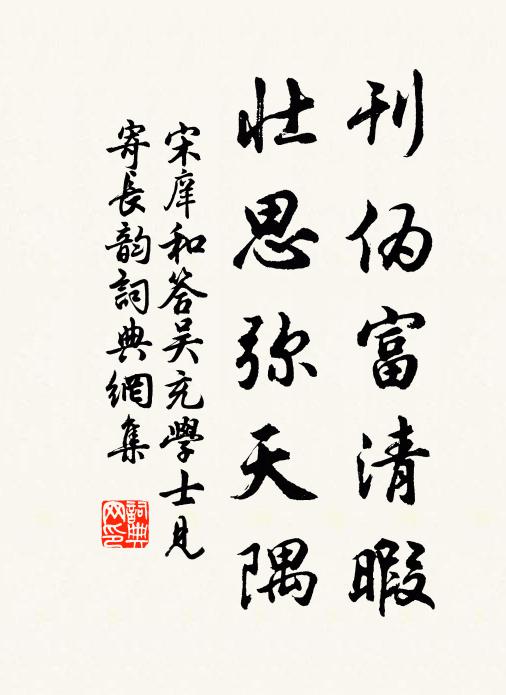 刊伪富清暇
壮思弥天隅
宋庠和答吴充學士見
寄長韵詞典網集
詞典網印